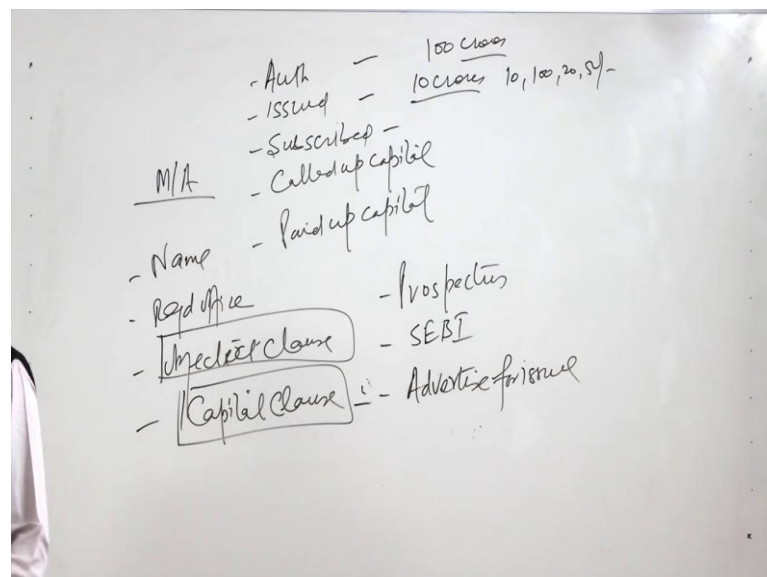 - Auth - 100 crores
- Issued - 10 crores 10, 100, 20, 5/-
- Subscribed -
- Called up capital
- Paid up capital
M/A
- Name
- Regd office
- Object Clause
- Capital Clause :
- Prospectus
- SEBI
- Advertise for issue